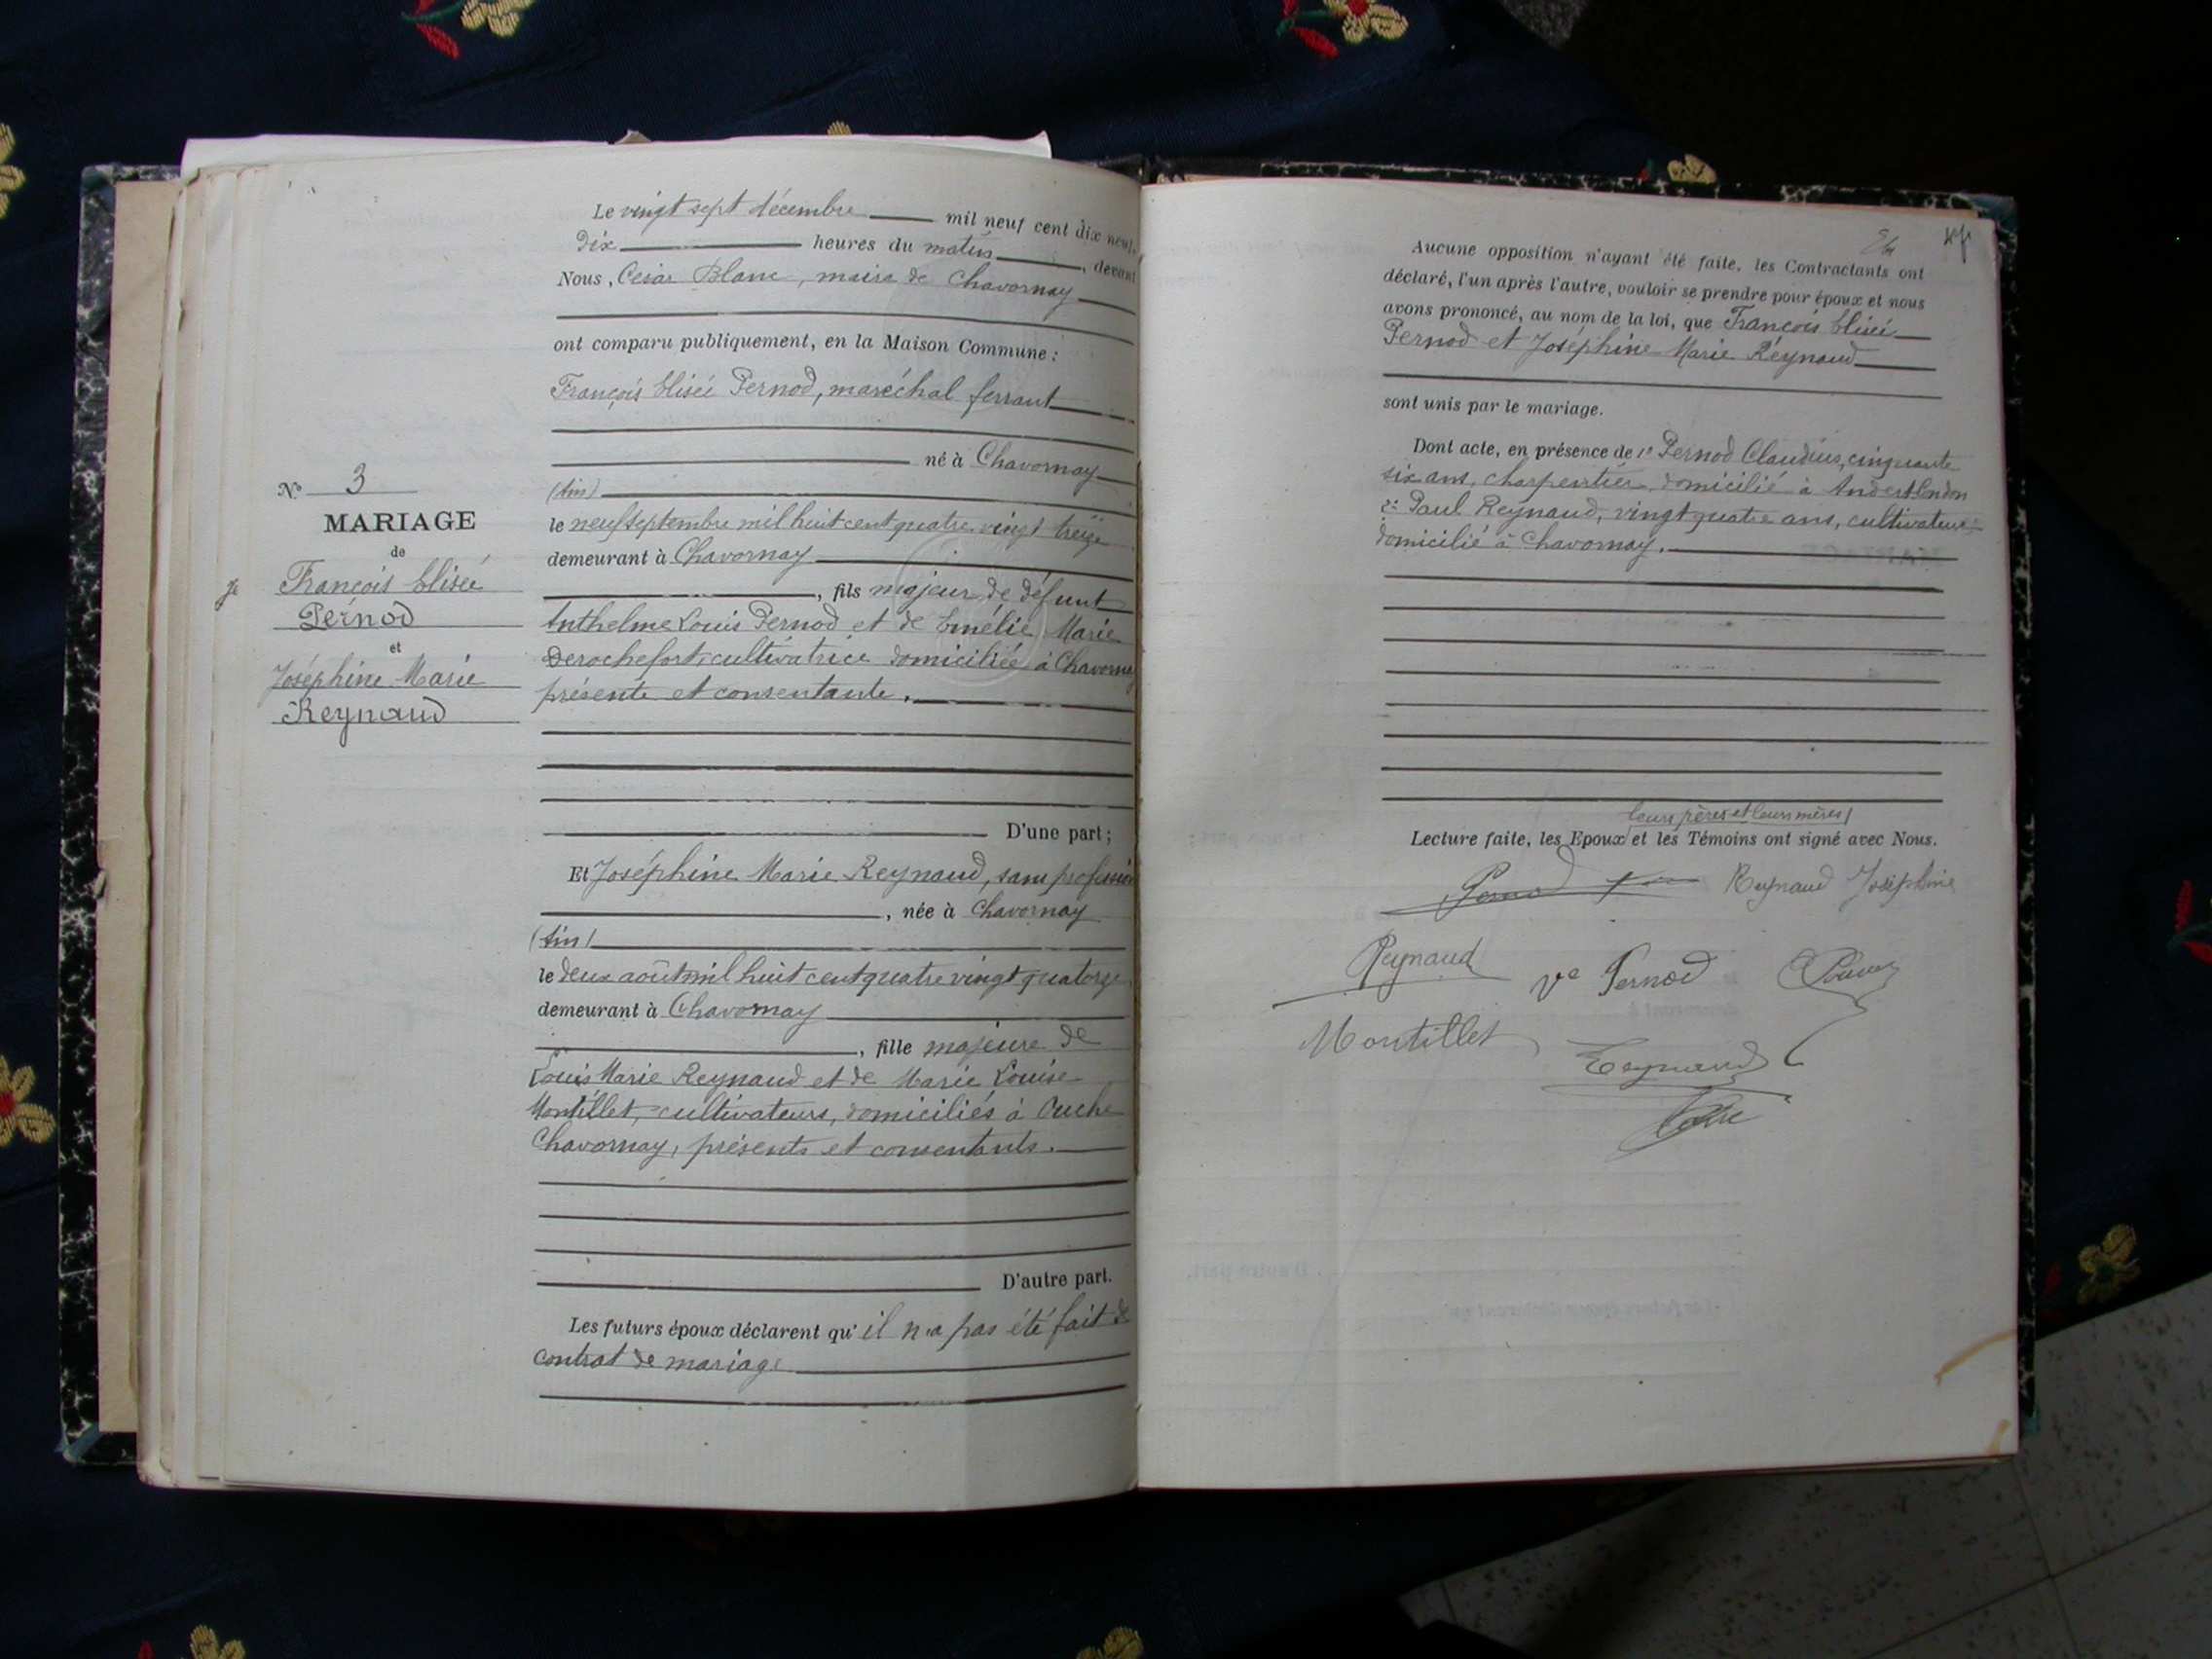 Le vingt sept décembre mil neuf cent dix neuf,
Dix heures du matin, devant
Nous, César Blanc, maire de Chavornay
ont comparu publiquement, en la Maison Commune :
François Elisée Pernod, maréchal ferrant
né à Chavornay
(Ain)
le neuf septembre mil huit cent quatre vingt treize
demeurant à Chavornay
, fils majeur de défunt
Anthelme Louis Pernod et de Emélie Marie
Derochefort, cultivatrice domiciliée à Chavornay
présente et consentante.
D'une part ;
Et Joséphine Marie Reynaud, sans profession
, née à Chavornay
(Ain)
le deux août mil huit cent quatre vingt quatorze
demeurant à Chavornay
, fille majeure de
Louis Marie Reynaud et de Marie Louise
Montillet, cultivateurs, domiciliés à Ouche
Chavornay, présents et consentants.
D'autre part.
Les futurs époux déclarent qu'il n'a pas été fait de
contrat de mariage
N° 3
MARIAGE
de
François Elisée
Pernod
et
Joséphine Marie
Reynaud
Aucune opposition n'ayant été faite, les Contractants ont
déclaré, l'un après l'autre, vouloir se prendre pour époux et nous
avons prononcé, au nom de la loi, que François Elisée
Pernod et Joséphine Marie Reynaud
sont unis par le mariage.
Dont acte, en présence de 1° Pernod Claudius, cinquante
six ans, charpentier, domicilié à
2° Paul Reynaud, vingt quatre ans, cultivateur
domicilié à Chavornay.
leurs pères et leurs mères
Lecture faite, les Epoux et les Témoins ont signé avec Nous.
Pernod Reynaud Joséphine
Reynaud Ve Pernod
Montillet Reynaud